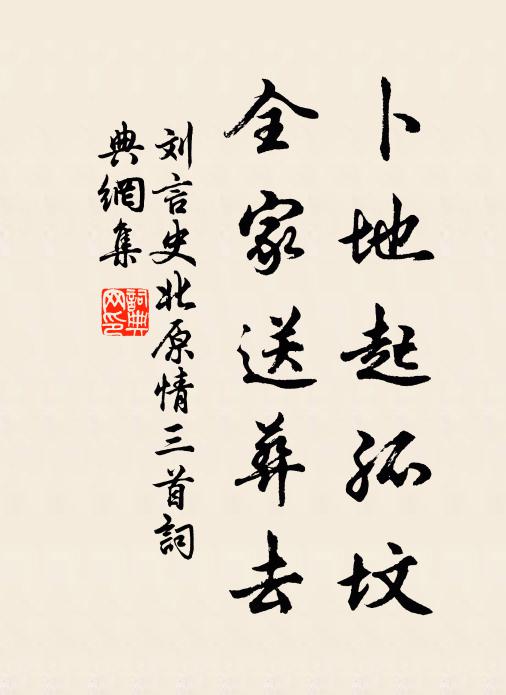 卜地起孤坟
全家送葬去
刘言史北原情三首詞
典網集
詞典
网印